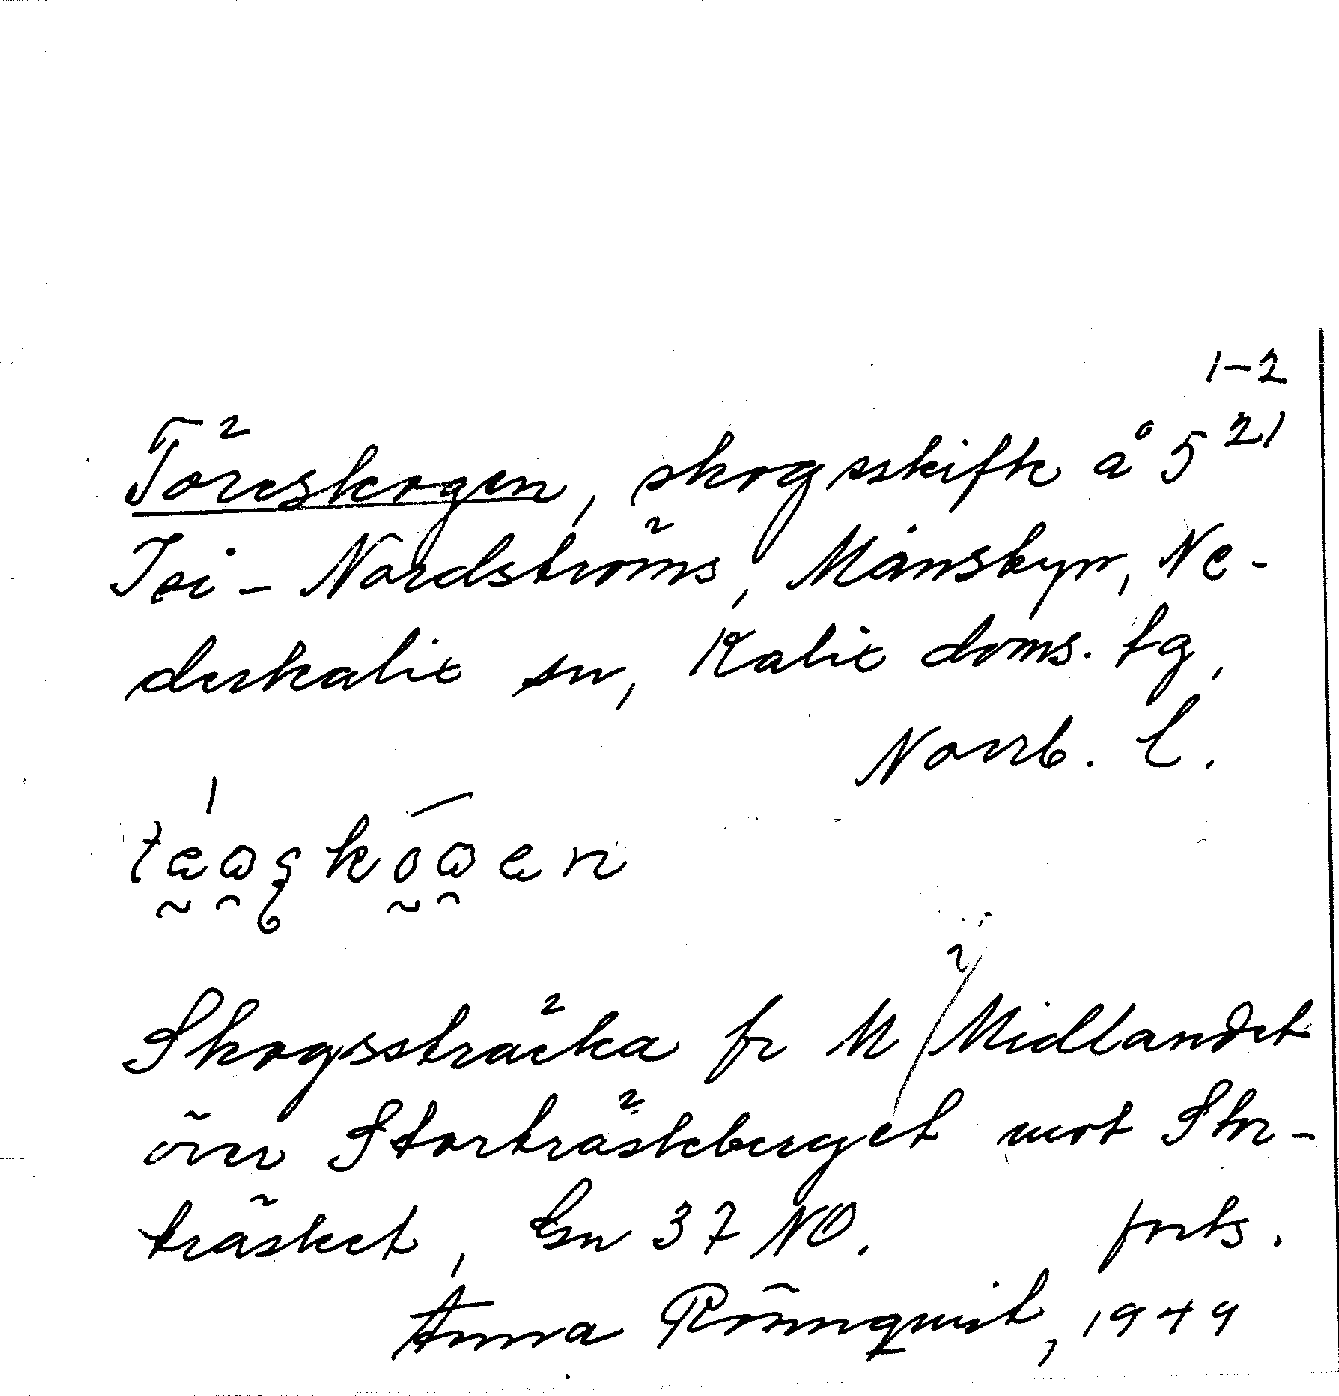 1-2
Töreskogen, skogsskifte å 5 21
Joi - Nordströms, Månsbyn, Ne-
derkalix sn, Kalix doms. tg,
Norrb. l.
Skogssträcka fr M / Midlandet
över Storträskberget mot Stor-
träsket, Gn 37 NO. forts.
Anna Rönnquist, 1949